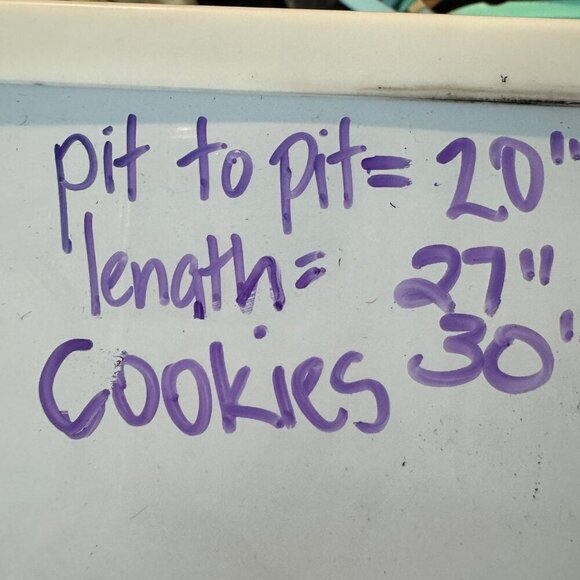 pit to pit= 20"
length= 27"
Cookies 30"